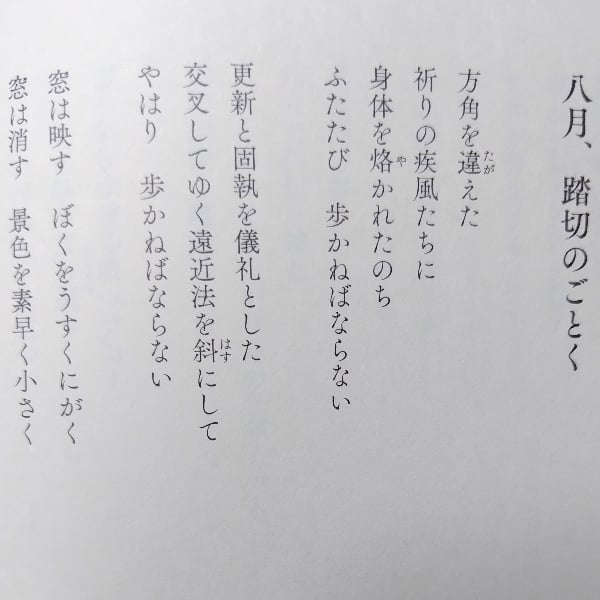 八月、踏切のごとく
方角を違えた
祈りの疾風たちに
身体を烙かれたのち
ふたたび　歩かねばならない
更新と固執を儀礼とした
交叉してゆく遠近法を斜にして
やはり　歩かねばならない
窓は映す　ぼくをうすくにがく
窓は消す　景色を素早く小さく